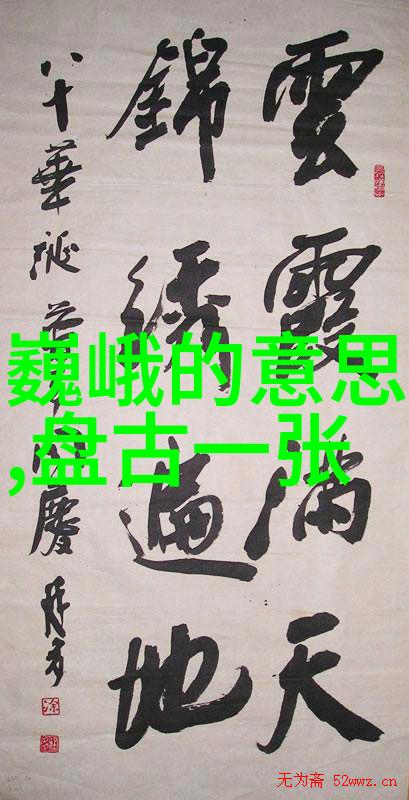 雲霞满天
錦绣遍地
八十華诞 慶
巍峨的意思
,盘古一张
无为斋 52wwz.cn